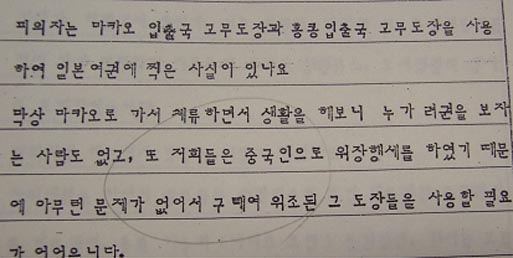 피의자는 마카오 입출국 고무도장과 홍콩입출국 고무도장을 사용
하여 일본여권에 찍은 사실이 있나요
막상 마카오로 가서 체류하면서 생활을 해보니 누가 려권을 보자
는 사람도 없고, 또 저희들은 중국인으로 위장행세를 하였기 때문
에 아무런 문제가 없어서 구태여 위조된 그 도장들을 사용할 필요
가